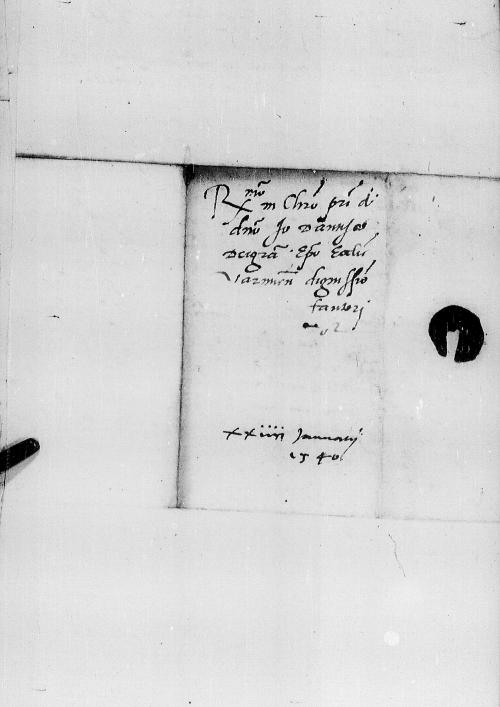 Rmo in Chro pri d
dno Jo Dantisco
Dei gra Epo Eccl
Varmien dignissio
fautori
xxiiii Januarij
1540